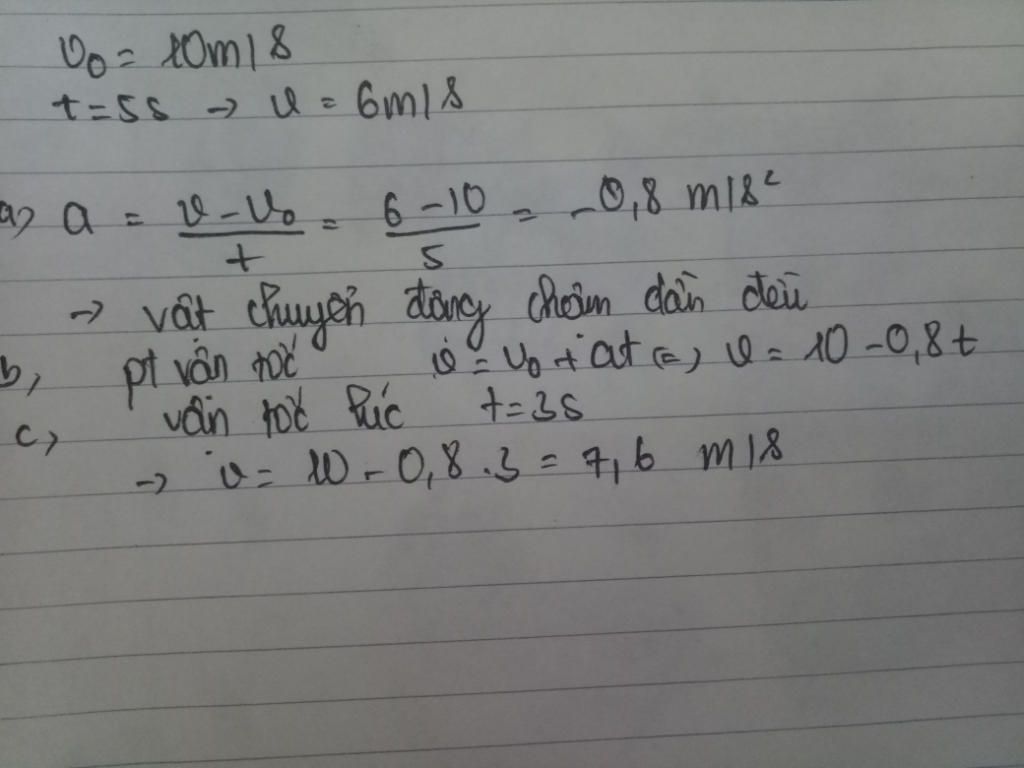 v₀ = 10m/s
t = 5s → v = 6m/s
a) a = (v - v₀)/t = (6 - 10)/5 = -0,8 m/s²
→ vật chuyển động chậm dần đều
b, pt vận tốc v = v₀ + at (=) v = 10 - 0,8t
c, vận tốc lúc t = 3s
→ v = 10 - 0,8 . 3 = 7,6 m/s